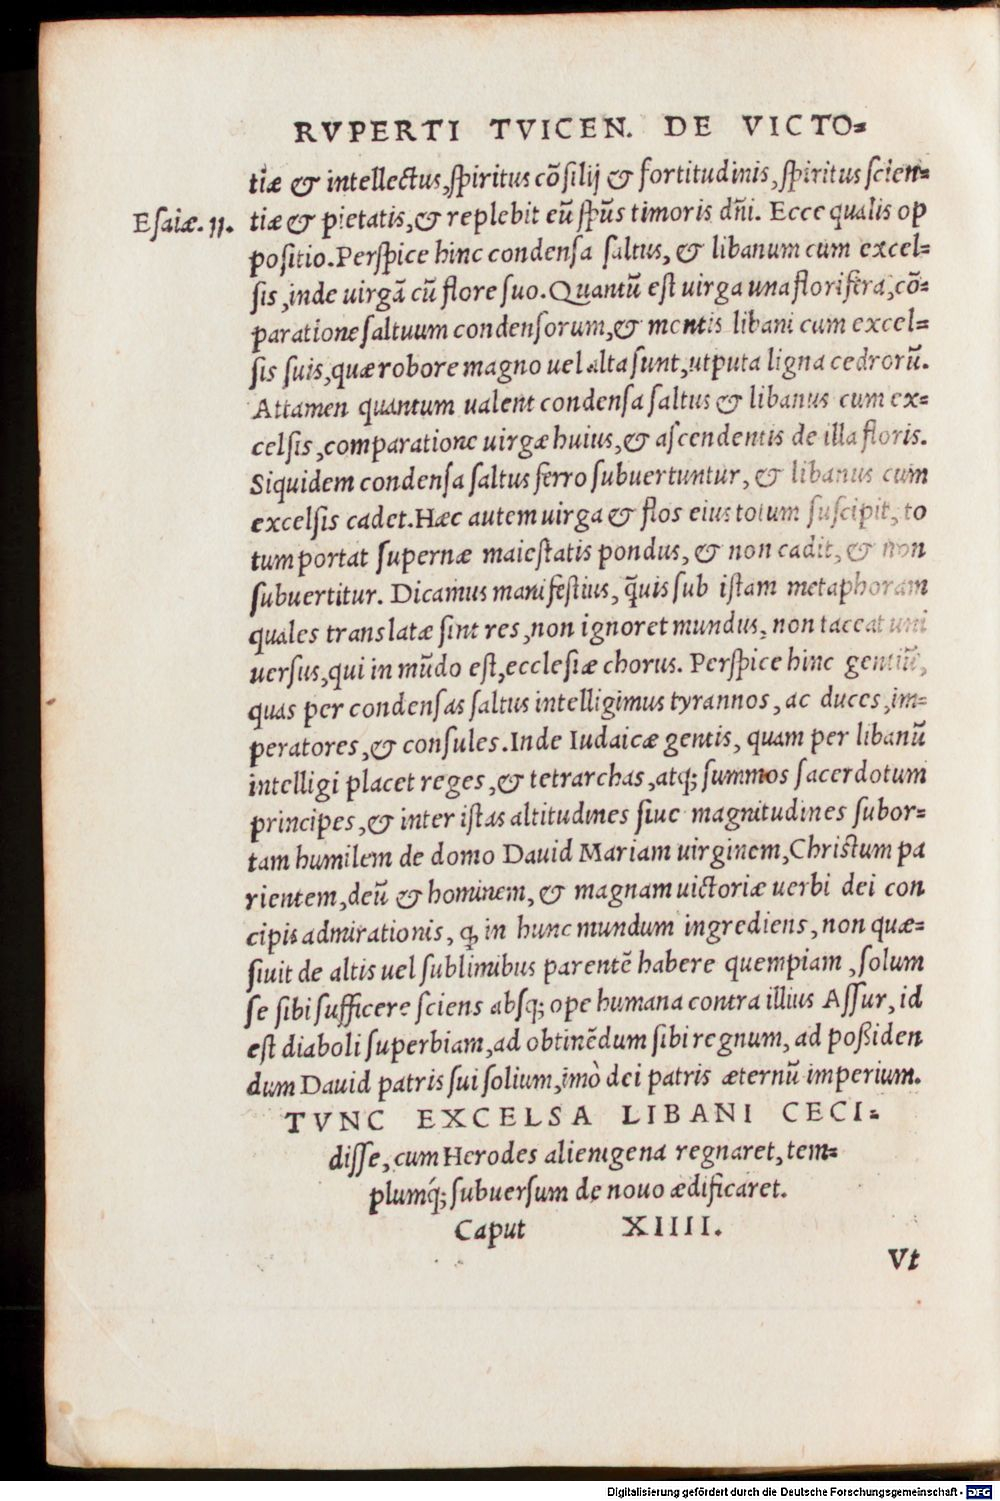 RVPERTI TVICEN. DE VICTO=
tiæ & intellectus, spiritus cõsilij & fortitudinis, spiritus scien=
Esaiæ. 11.
tiæ & pietatis, & replebit eũ spũs timoris dñi. Ecce qualis op
positio. Perspice hinc condensa saltus, & libanum cum excel=
sis, inde uirgã cũ flore suo. Quantũ est uirga una florifera, cõ=
paratione saltuum condensorum, & montis libani cum excel=
sis suis, quæ robore magno uel alta sunt, utputa ligna cedrorũ.
Attamen quantum ualent condensa saltus & libanus cum ex=
celsis, comparatione uirgæ huius, & ascendentis de illa floris.
Siquidem condensa saltus ferro subuertuntur, & libanus cum
excelsis cadet. Hæc autem uirga & flos eius totum suscipit, to
tum portat supernæ maiestatis pondus, & non cadit, & non
subuertitur. Dicamus manifestius, q̃uis sub istam metaphoram
quales translatæ sint res, non ignoret mundus, non taceat uni
uersus, qui in mũdo est, ecclesiæ chorus. Perspice hinc gentiũ,
quas per condensas saltus intelligimus tyrannos, ac duces, im=
peratores, & consules. Inde Iudaicæ gentis, quam per libanũ
intelligi placet reges, & tetrarchas, atq; summos sacerdotum
principes, & inter istas altitudines siue magnitudines subor=
tam humilem de domo Dauid Mariam uirginem, Christum pa
rientem, deũ & hominem, & magnam uictoriæ uerbi dei con
cipis admirationis, ꝙ in hunc mundum ingrediens, non quæ=
siuit de altis uel sublimibus parentẽ habere quempiam, solum
se sibi sufficere sciens absq; ope humana contra illius Assur, id
est diaboli superbiam, ad obtinẽdum sibi regnum, ad poßiden
dum Dauid patris sui solium, imò dei patris æternũ imperium.
TVNC EXCELSA LIBANI CECI=
disse, cum Herodes alienigena regnaret, tem=
plumq́; subuersum de nouo ædificaret.
Caput XIIII.
Vt
Digitalisierung gefördert durch die Deutsche Forschungsgemeinschaft - DFG